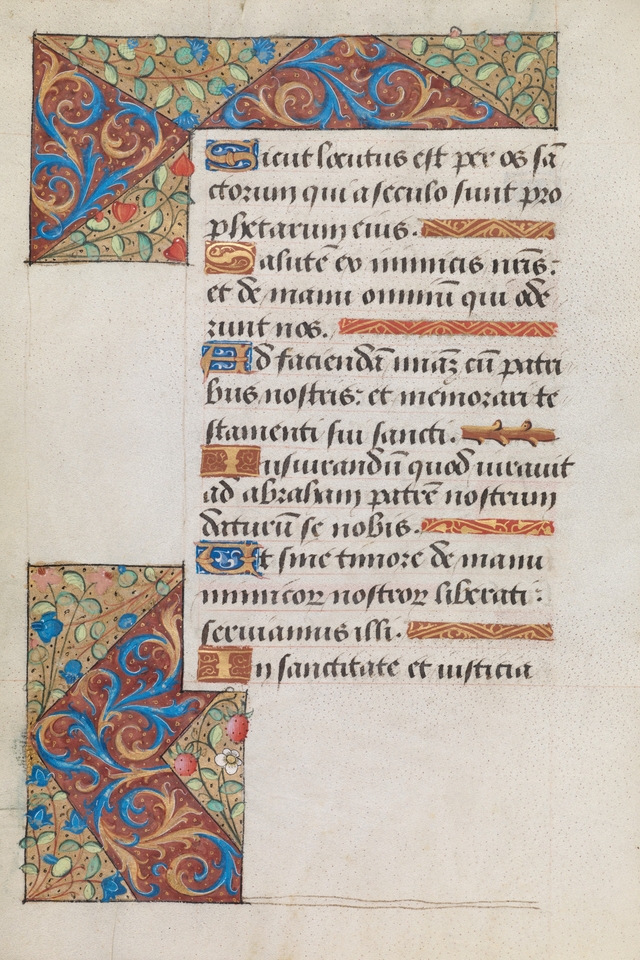 Sicut locutus est per os sā
ctorum qui a seculo sunt pro
phetarum eius.
Salutē ex inimicis nr̄is:
et de manu omniū qui ode
runt nos.
Ad faciendā miāʒ cū patri
bus nostris: et memorari te
stamenti sui sancti.
Iusiurandū quod iurauit
ad abraham patrē nostrum
daturū se nobis.
Et sine timore de manu
inimicoꝝ nostroꝝ liberati:
seruiamus illi.
In sanctitate et iusticia